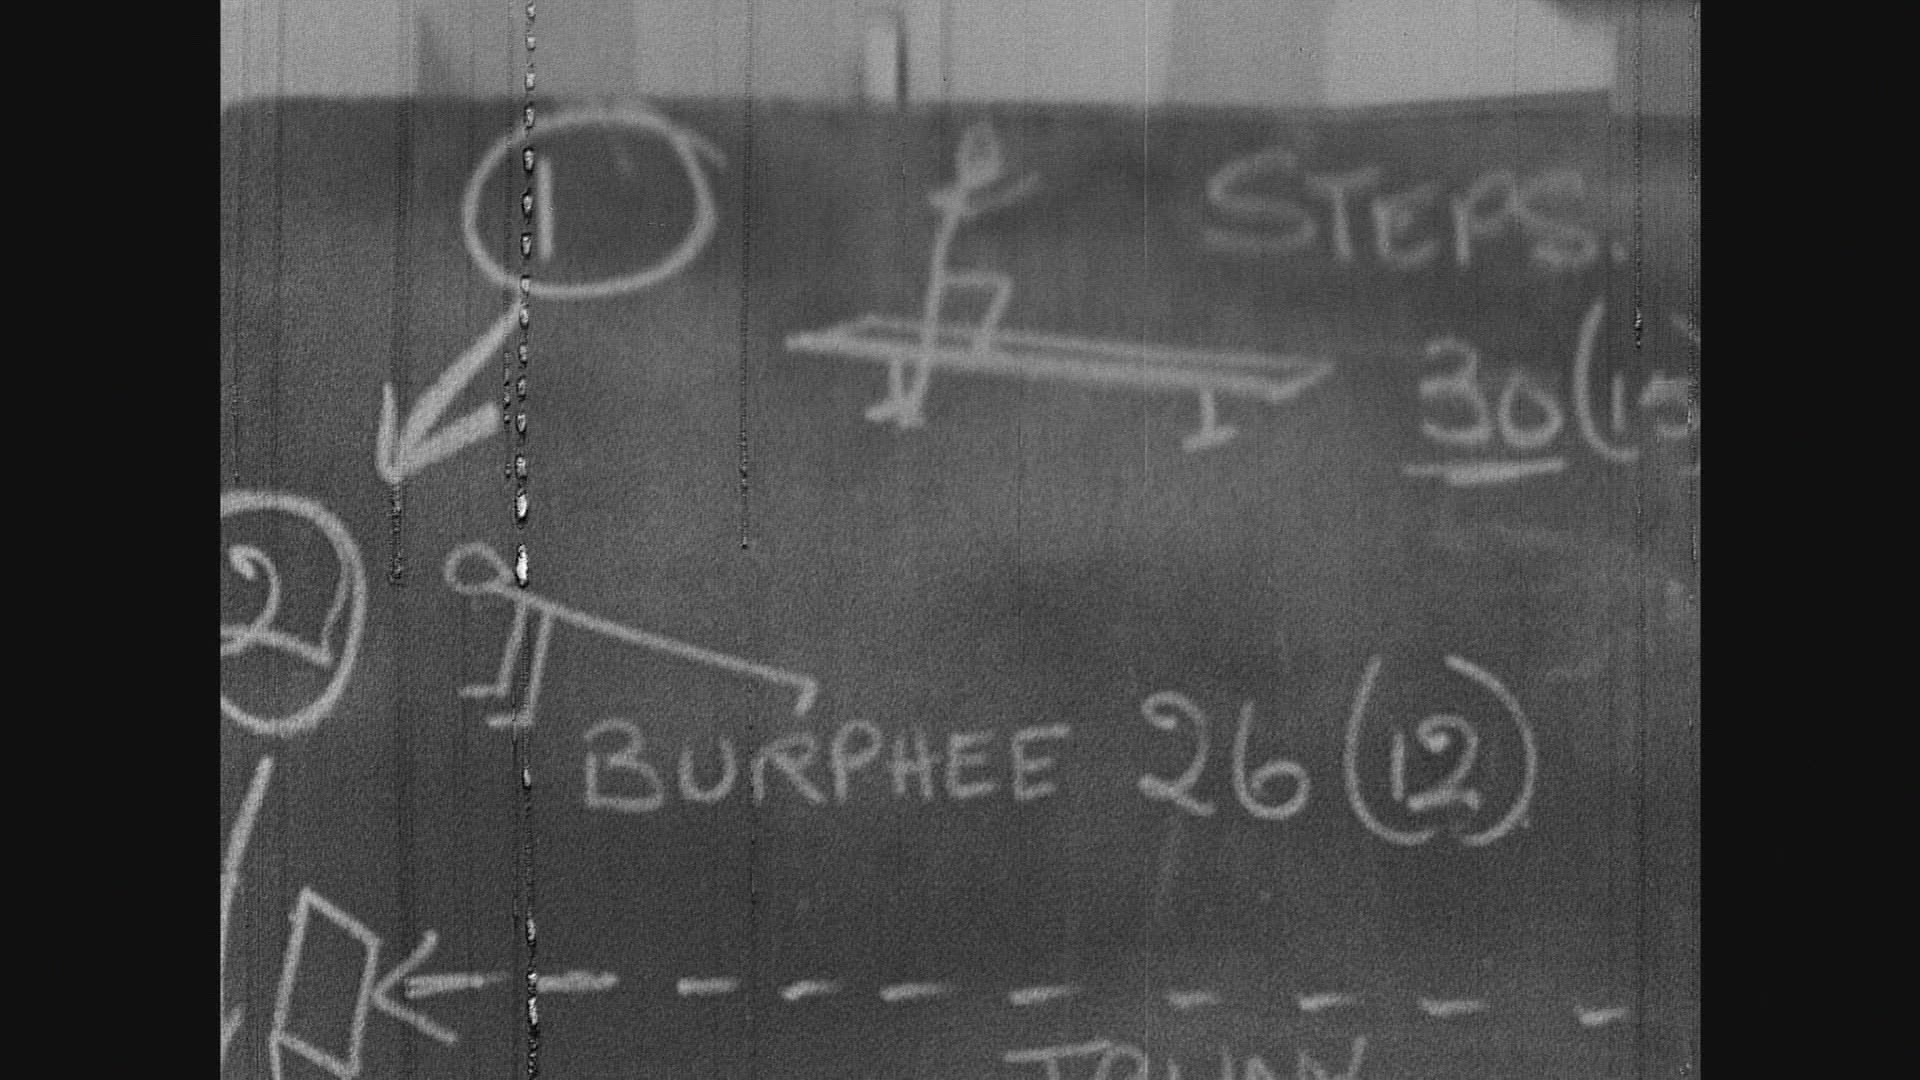 1
STEPS.
30 (15)
2
BURPHEE 26 (12)